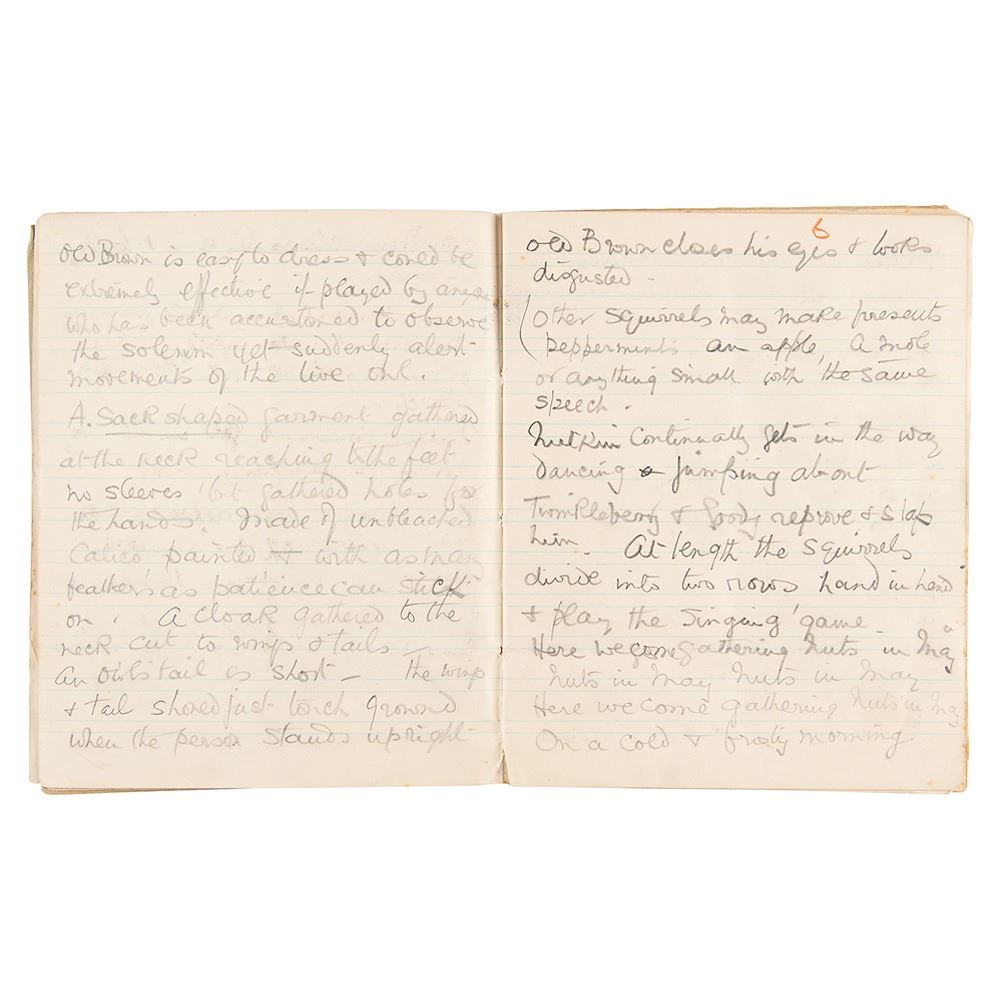 Old Brown is easy to dress & could be
extremely effective if played by anyone
who has been accustomed to observe
the solemn yet suddenly alert
movements of the live owl.
A. Sack shaped garment gathered
at the neck reaching to the feet
no sleeves but gathered holes for
the hands. Made of unbleached
Calico painted & with as many
feathers as patience can stick
on. A cloak gathered to the
neck cut to wings & tails —
An owls tail is short — the wings
& tail should just touch ground
when the person stands upright
6
Old Brown closes his eyes & looks
disgusted -
(Other squirrels may make presents
peppermints an apple, a mole
or anything small with the same
speech.
Nutkin continually gets in the way
dancing & jumping about
Twinkleberry & Goody reprove & slap
him. At length the squirrels
divide into two rows hand in hand
& play the singing game -
Here we come gathering nuts in May
Nuts in May Nuts in May
Here we come gathering Nuts in May
On a cold & frosty morning.